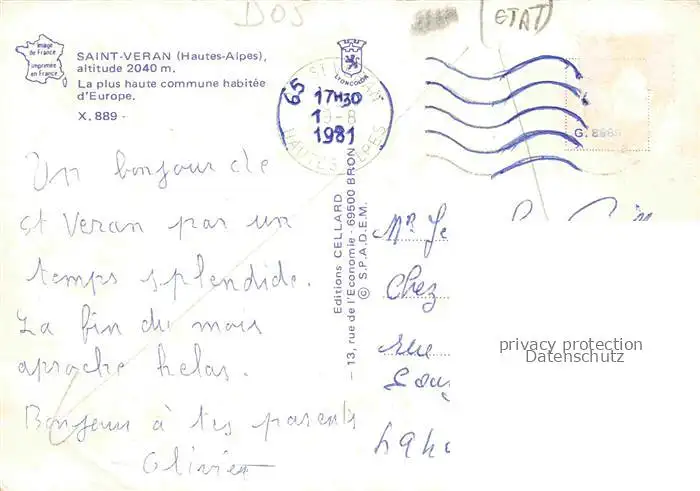 DOS
(ETAT)
Image de France
imprimée en France
SAINT-VERAN (Hautes-Alpes),
altitude 2040 m.
La plus haute commune habitée
d'Europe.
X. 889 -
LYONCOLOR
17H30
1981
HAUTES ALPES
Un bonjour de
St Veran par un
temps splendide.
La fin du mois
aproche helas.
Bonjour à tes parents
Olivier
Editions CELLARD
— 13, rue de l'Economie - 69500 BRON —
© S.P.A.D.E.M.
Mr Je
Chez
rue
privacy protection
Datenschutz